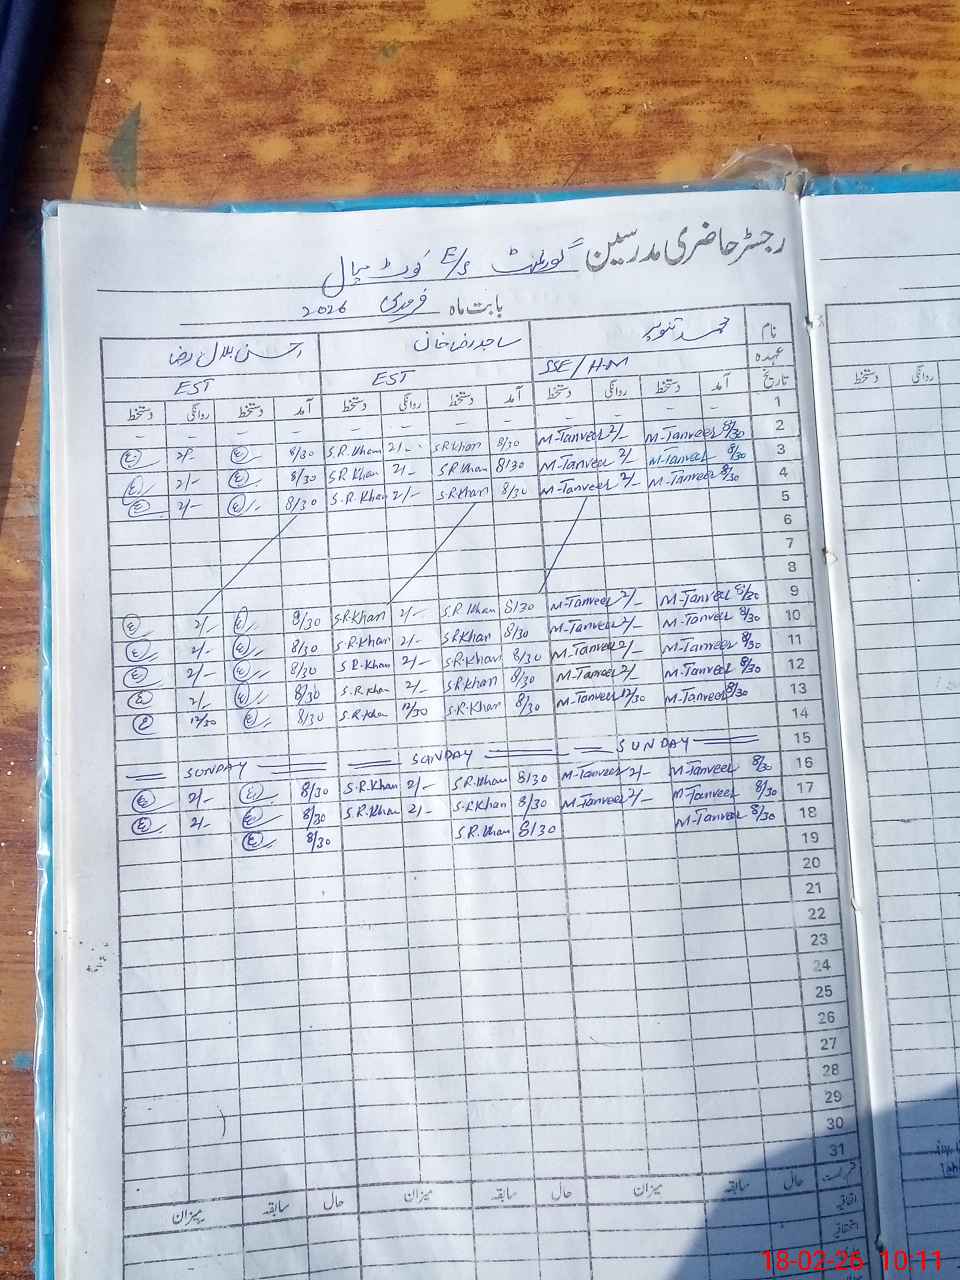 رجسٹر حاضری مدرسین گورنمنٹ E/S کوٹ
بابت ماہ فروری 2026
نام محمد تنویر ساجد رضا خان احسن بلال رضا
عہدہ SSE/H.M EST EST
تاریخ آمد دستخط روانگی دستخط آمد دستخط روانگی دستخط آمد دستخط روانگی دستخط
1 - - - - - - - - - - - -
2 8/30 M-Tanveer 2/- M-Tanveer 8/30 S.R.Khan 2/- S.R.Khan 8/30 2/-
3 8/30 M-Tanveer 2/- M-Tanveer 8/30 S.R.Khan 2/- S.R.Khan 8/30 2/-
4 8/30 M-Tanveer 2/- M-Tanveer 8/30 S.R.Khan 2/- S.R.Khan 8/30 2/-
5
6
7
8
9 8/30 M-Tanveer 2/- M-Tanveer 8/30 S.R.Khan 2/- S.R.Khan 8/30 2/-
10 8/30 M-Tanveer 2/- M-Tanveer 8/30 S.R.Khan 2/- S.R.Khan 8/30 2/-
11 8/30 M-Tanveer 2/- M-Tanveer 8/30 S.R.Khan 2/- S.R.Khan 8/30 2/-
12 8/30 M-Tanveer 2/- M-Tanveer 8/30 S.R.Khan 2/- S.R.Khan 8/30 2/-
13 8/30 M-Tanveer 12/30 M-Tanveer 8/30 S.R.Khan 12/30 S.R.Khan 8/30 12/30
14
15 SUNDAY SUNDAY SUNDAY
16 8/30 M-Tanveer 2/- M-Tanveer 8/30 S.R.Khan 2/- S.R.Khan 8/30 2/-
17 8/30 M-Tanveer 2/- M-Tanveer 8/30 S.R.Khan 2/- S.R.Khan 8/30 2/-
18 8/30 M-Tanveer 8/30 S.R.Khan 8/30
19
20
21
22
23
24
25
26
27
28
29
30
31
حال سابقہ میزان حال سابقہ میزان حال سابقہ میزان
اتفاقیہ
دستخط روانگی
18-02-26 10:11